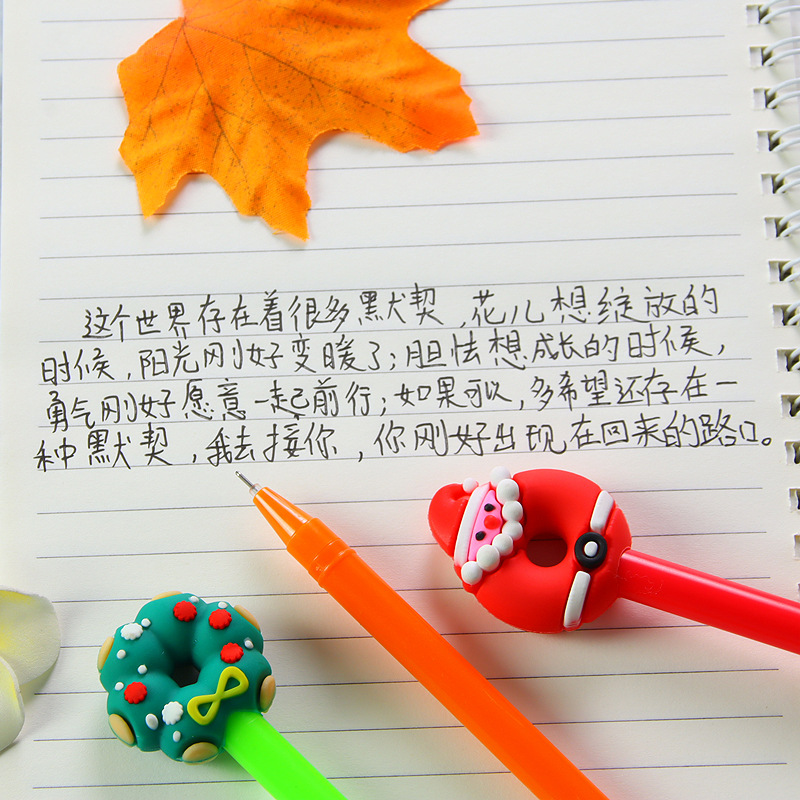 这个世界存在着很多默契,花儿想绽放的
时候,阳光刚好变暖了;胆怯想成长的时候,
勇气刚好愿意一起前行;如果可以,多希望还存在一
种默契,我去接你,你刚好出现在回来的路口。